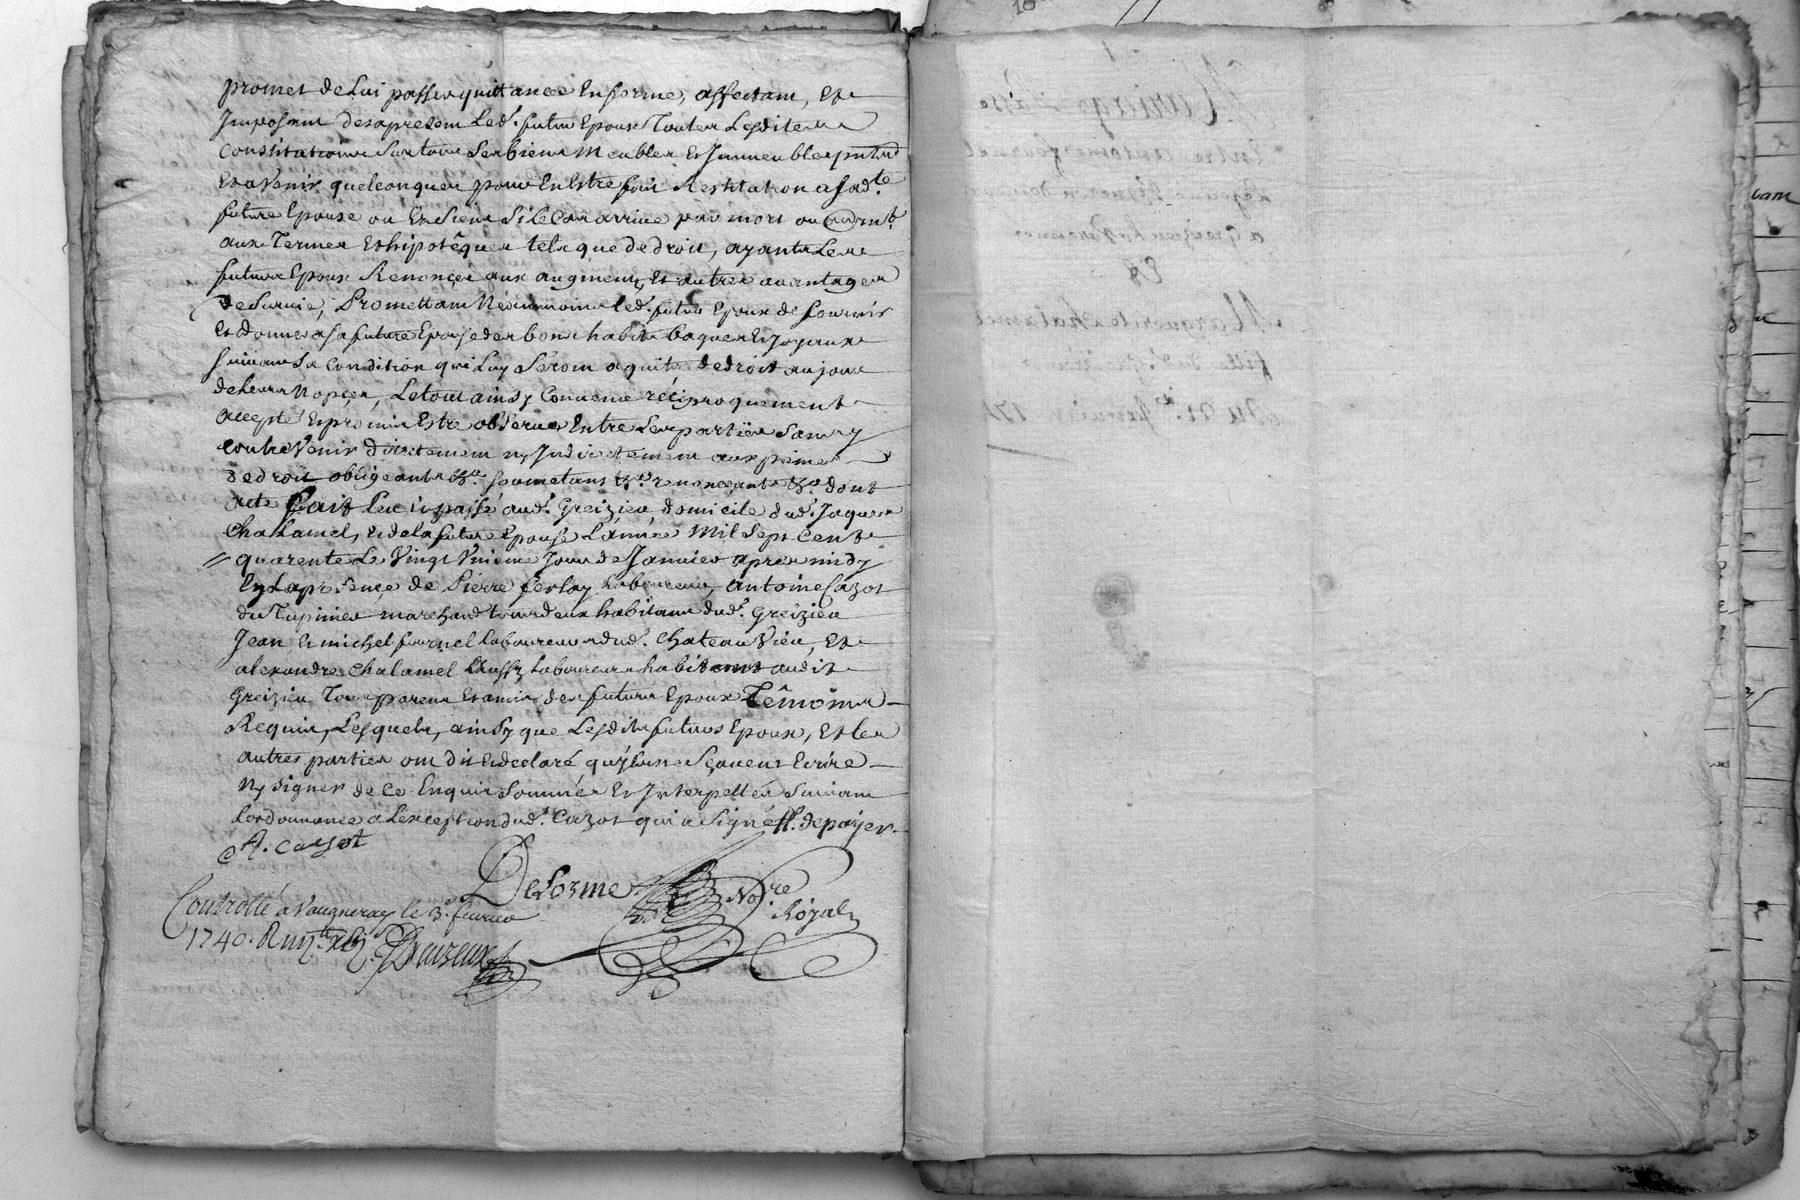 promet de Lui passer quittance En forme, affectant, Et
Imposant desapresent Led. futur Epoux Toutes Lesdites
Constitutions Sur tous Ses biens Meubles Et Immeubles pnts
Et avenir quelconques pour En Estre fait Restitution a sad.te
future Epouse ou Es Siens Si le Cas arrive par mort ou
aux Termes Et hipotêques tels que de droit, ayants Les
futurs Epoux Renonçés aux augments, Et autres avantages
de Survie, Promettant Neanmoins led. futur Epoux de fournir
Et donner a sa future Epouse des bons habits bagues Et Joyaux
Suivant Sa Condition qui Luy Seront aquits de droit au jour
de Leurs Nopçes, Le tout ainsy Convenu réçiproquement
accepté Et promis Estre observé Entre Les parties Sans y
contrevenir directement ny Indirectement aux peines
de droit obligeants &a. soumetans &a. renonçants &a. dont
acte fait Leu Et passé aud. Greizieu domicile dud. Jaques
Chalamel, Et de la future Epouse L'année Mil Sept Cent
quarente Le Vingt Unieme Jour de Janvier apres midy
En La presençe de Pierre ferlay Laboureur, Antoine Cazot
du Tupinier marchand tous deux habitants dud. Greizieu
Jean Et michel fournel laboureurs dud. Chateau Vieu, Et
alexandre Chalamel aussy Laboureur habitant audit
Greizieu Tous parens Et amis des futurs Epoux Têmoins
Requis, Lesquels, ainsy que Lesdits futurs Epoux, Et les
autres parties ont dit Et declaré qu'ils ne Sçavent Ecrire
Ny Signer de Ce Enquis Sommés Et Interpellés Suivant
Lordonnance a Lexception dud. Cazot qui a Signé //. de payer
A. Cazot
Delorme No.re
Royal
Controllé a Vaugneray le 3.e fevrier
1740. R
Mariage
Entre Antoine fournel
Et
Marguerite Chalamel